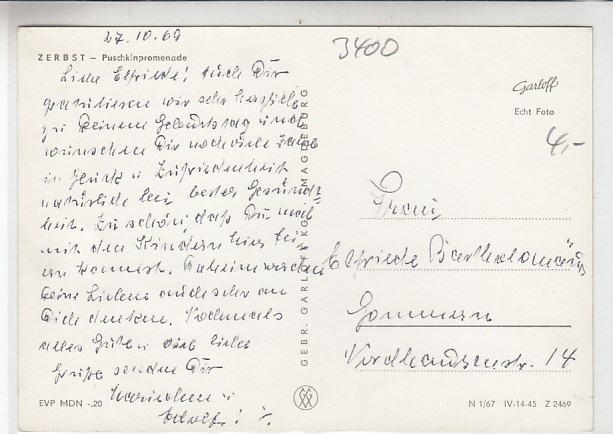 27.10.69
3400
ZERBST – Puschkinpromenade
Garloff
Echt Foto
4,-
Liebe Elfriede! Auch Dir
gratulieren wir sehr herzlich
zu Deinem Geburtstag und
wünschen Dir noch viele Jahre
in Glück u. Zufriedenheit
natürlich bei bester Gesund-
heit. Zu schön, daß Du mal
mit den Kindern hier fei-
ern kannst. Daheim werden
Deine Lieben auch sehr an
Dich denken. Nochmals
alles Gute u. liebe
Grüße senden Dir
Mariechen u.
Adolf
Frau
Elfriede Bartholomäus
Gommern
Nordhausenstr. 14
GEBR. GARLOFF KG. MAGDEBURG
EVP MDN -,20
N 1/67 IV-14-45 Z 2469